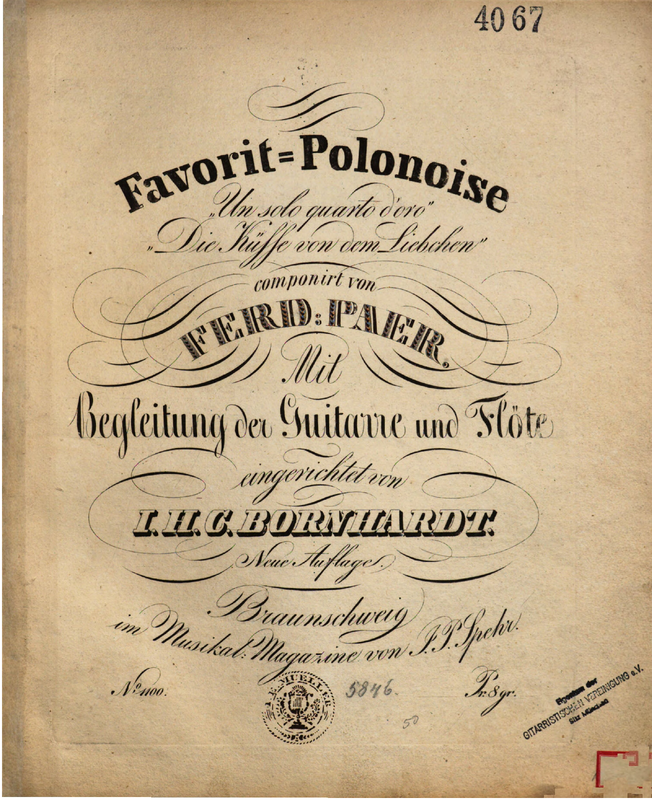 4067
Favorit=Polonoise
„Un solo quarto d'oro"
„Die Küsse von dem Liebchen"
componirt von
FERD: PAER.
Mit
Begleitung der Guitarre und Flöte
eingerichtet von
I. H. C. BORNHARDT.
Neue Auflage.
Braunschweig
im Musikal: Magazine von J. P. Spehr.
No 1100.
A. E. MUELLER
5846.
50
Pr. 8 gr.
GITARRISTISCHEN VEREINIGUNG e.V.